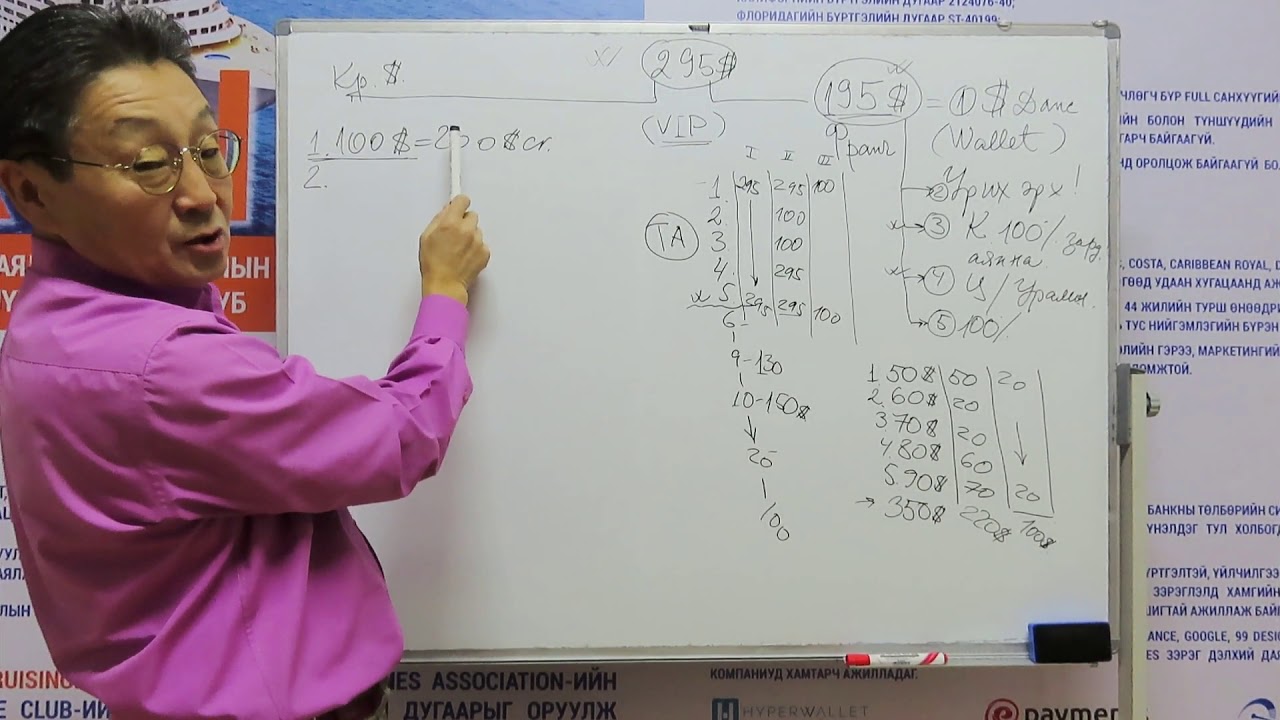 ФЛОРИДАГИЙН БҮРТГЭЛИЙН ДУГААР ST-40199;
Кр. $.
295$
195$ = ① $ Данс
(VIP)
Франч
(Wallet)
1. 100$ = 200$ cr.
2.
I II III
1. 295 295 100
2. 100
3. 100
4. 295
5. 295 295 100
6-
9-130
10-150$
20
100
TA
② Урих эрх!
③ К. 100% зард
аянна.
④ Ц/Урамш.
⑤ 100%
1. 50$ 50 20
2. 60$ 20
3. 70$ 20
4. 80$ 60
5. 90$ 70 20
→ 350$ 220$ 100$
ЧЛӨГЧ БҮР FULL САНХҮҮГИЙ
ИЙН БОЛОН ТҮНШҮҮДИЙН
ГАРЧ БАЙГААГҮЙ.
НД ОРОЛЦОЖ БАЙГААГҮЙ БОЛ
S, COSTA, CARIBBEAN ROYAL, D
ГӨӨД УДААН ХУГАЦААНД АЖ
44 ЖИЛИЙН ТУРШ ӨНӨӨДРИ
ТУС НИЙГЭМЛЭГИЙН БҮРЭН
ЭЛИЙН ГЭРЭЭ, МАРКЕТИНГИЙ
ЛОМЖТОЙ.
БАНКНЫ ТӨЛБӨРИЙН СИ
ҮНЭЛДЭГ ТУЛ ХОЛБОГД
ҮРТГЭЛТЭЙ, ҮЙЛЧИЛГЭЭ
ЗЭРЭГЛЭЛД ХАМГИЙН
ШИГТАЙ АЖИЛЛАЖ БАЙ
ANCE, GOOGLE, 99 DESIG
ES ЗЭРЭГ ДЭЛХИЙ ДАЯ
RUISING
E CLUB-ИЙ
NES ASSOCIATION-ИЙН
ДУГААРЫГ ОРУУЛЖ
КОМПАНИУД ХАМТАРЧ АЖИЛЛАДАГ.
HYPERWALLET
paymen